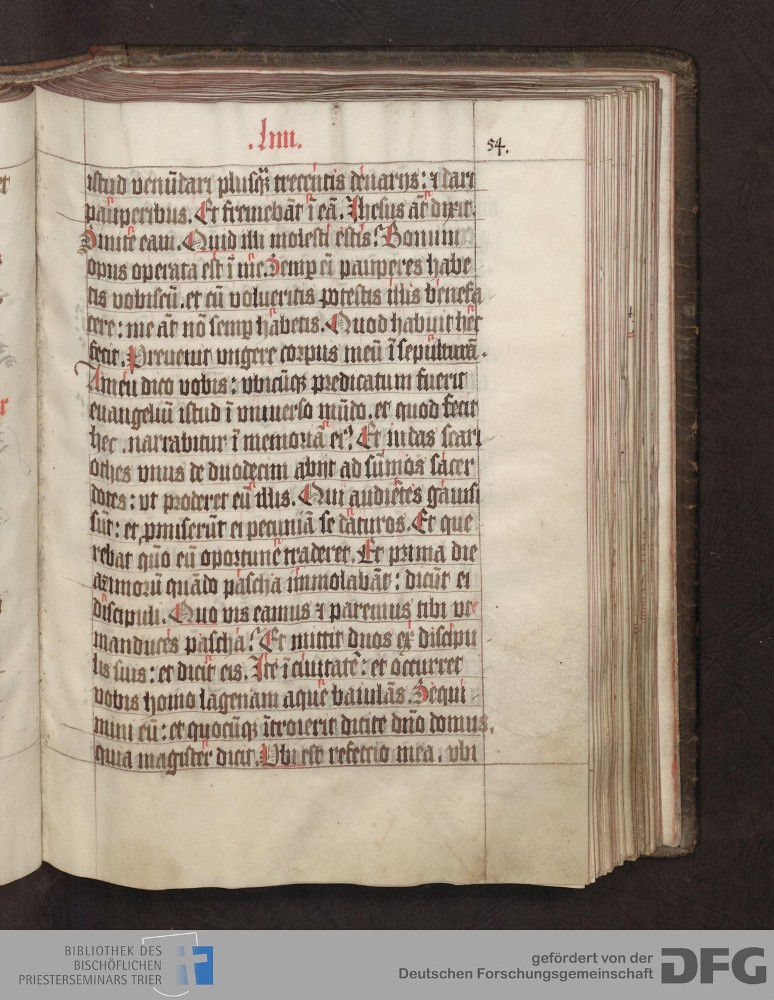 .liiii.
54.
istud venūdari plusq̄ȝ trecentis denariis: ⁊ dari
pauperibus. Et fremebāt ī eā. Jhesus āt dixit.
Sinite eam. Quid illi molesti estis? Bonum
opus operata est ī me. Semp eī pauperes habe
tis vobiscū. et cū volueritis potestis illis benefa
cere: me āt nō semp habetis. Quod habuit hec
fecit. Prevenit vngere corpus meū ī sepulturā.
Amen dico vobis: vbicūqȝ predicatum fuerit
euangeliū istud ī vniuerso mūdo. et quod fecit
hec. narrabitur ī memoriā eiꝰ. Et iudas scari
othes vnus de duodecim abijt ad sūmos sacer
dotes: vt proderet eū illis. Qui audiētes gauisi
sūt: et ꝓmiserūt ei pecuniā se daturos. Et que
rebat quō eū oportune traderet. Et prima die
azimorū quādo pascha immolabāt: dicūt ei
discipuli. Quo vis eamus ⁊ paremus tibi vt
manduces pascha? Et mittit duos ex discipu
lis suis: et dicit eis. Ite ī ciuitatē: et occurret
vobis homo lagenam aque baiulās. Sequi
mini eū: et quocūqȝ ītroierit dicite dn̄o domus.
quia magister dicit. Vbi est refectio mea. vbi
BIBLIOTHEK DES
BISCHÖFLICHEN
PRIESTERSEMINARS TRIER
gefördert von der
Deutschen Forschungsgemeinschaft
DFG